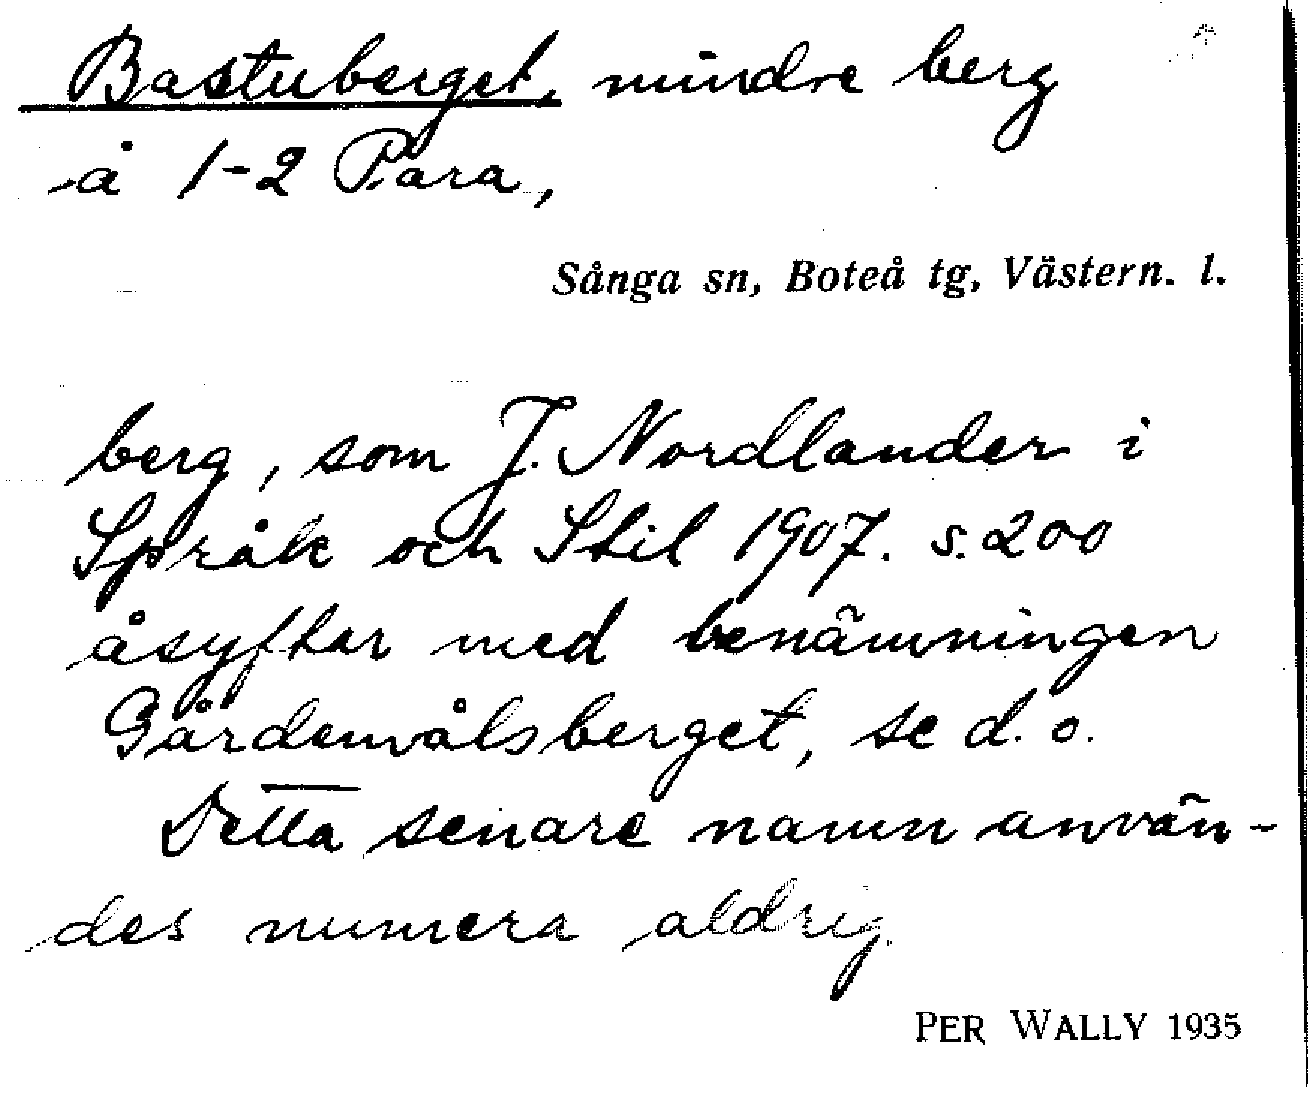 Bastuberget, mindre berg
å 1-2 Para,
Sånga sn, Boteå tg, Västern. l.
berg, som J. Nordlander i
Språk och Stil 1907. s. 200
åsyftar med benämningen
Gårdenvålsberget, se d. o.
Detta senare namn använ-
des numera aldrig.
PER WALLY 1935